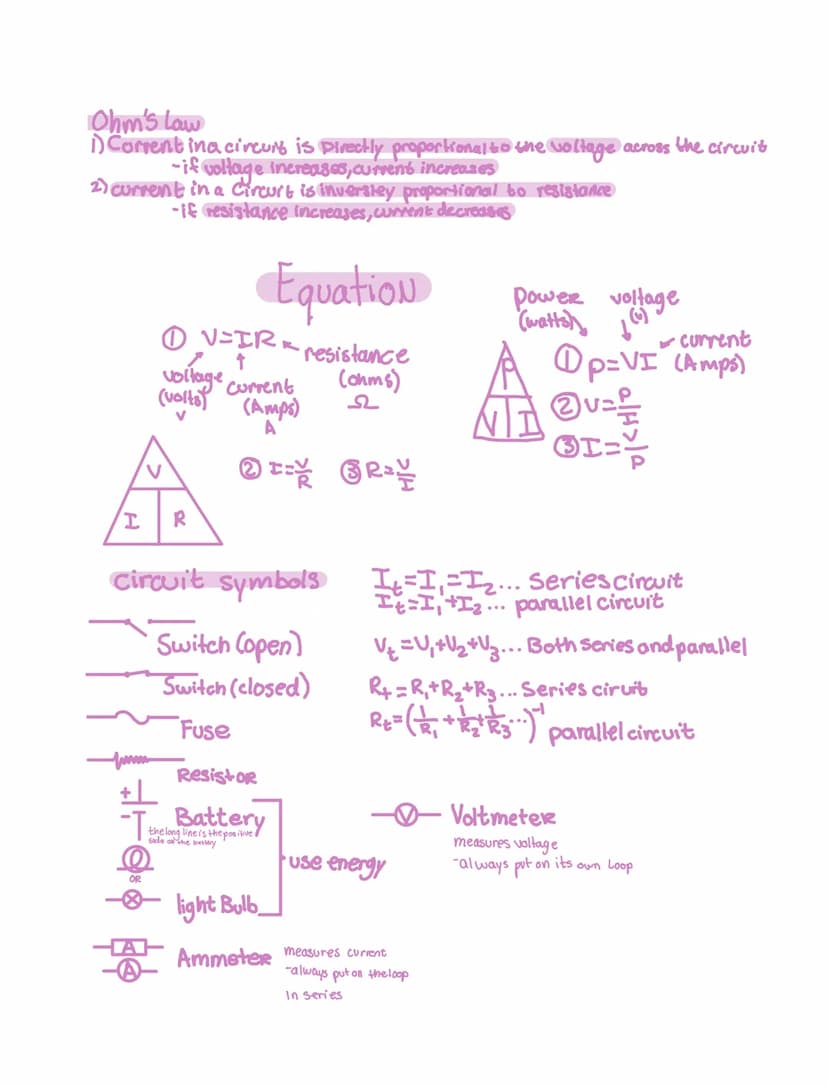 Ohm's Law
1) Current in a circuit is Directly proportional to the voltage across the circuit
-if voltage increases, current increases
2) current in a Circurt is inversley proportional to resistance
-if resistance increases, current decreases
Equation
① V=IR
resistance
(ohms)
Ω
voltage
(volts)
V
current
(Amps)
A
V
I R
② I=V/R ③ R=V/I
Power
(watts)
voltage
(v)
current
(Amps)
P
V I
① P=VI
② V=P/I
③ I=V/P
circuit symbols
Switch (open)
Switch (closed)
Fuse
Resistor
+
-
Battery
the long line is the positive
side of the battery
OR
light Bulb
use energy
A
A
Ammeter
measures current
-always put on the loop
In series
It=I₁=I₂... Series circuit
It=I₁+I₂... parallel circuit
Vt=V₁+V₂+V₃... Both series and parallel
Rt=R₁+R₂+R₃... Series ciruit
Rt=(1/R₁+1/R₂+1/R₃...)⁻¹ parallel circuit
V
Voltmeter
measures voltage
-always put on its own loop